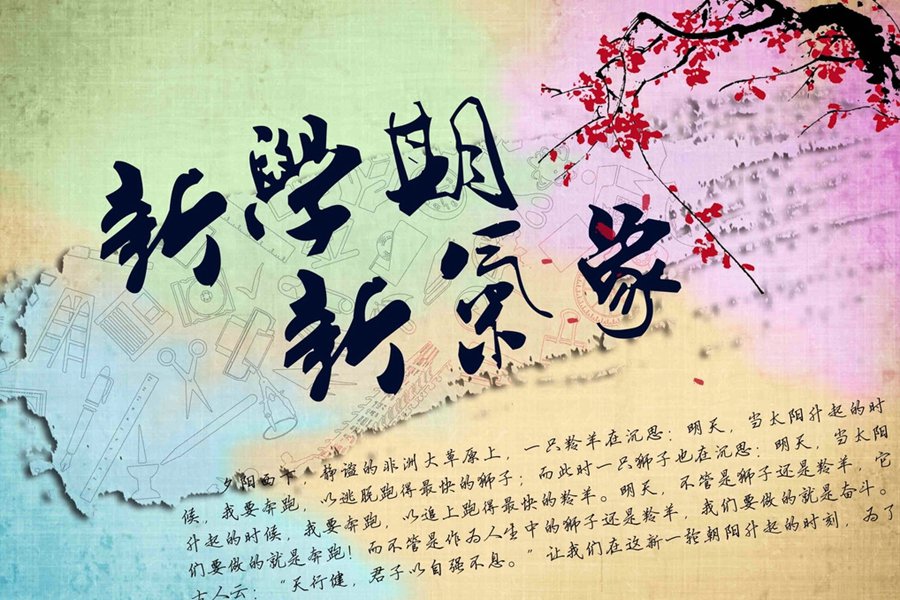 新學期
新氣象
夕阳西下，静谧的非洲大草原上，一只羚羊在沉思：明天，当太阳升起的时
候，我要奔跑，以逃脱跑得最快的狮子；而此时一只狮子也在沉思：明天，当太阳
升起的时候，我要奔跑，以追上跑得最快的羚羊。明天，不管是狮子还是羚羊，它
们要做的就是奔跑！而不管是作为人生中的狮子还是羚羊，我们要做的就是奋斗。
古人云：“天行健，君子以自强不息。”让我们在这新一轮朝阳升起的时刻，为了